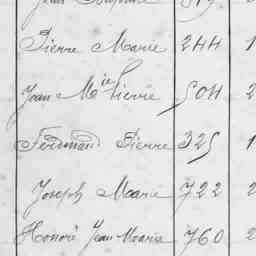 Pierre Marie 244 1
Jean Mie Pierre 504 2
Ferdinand Pierre 325 1
Joseph Marie 722 2
Honoré Jean Marie 760 2